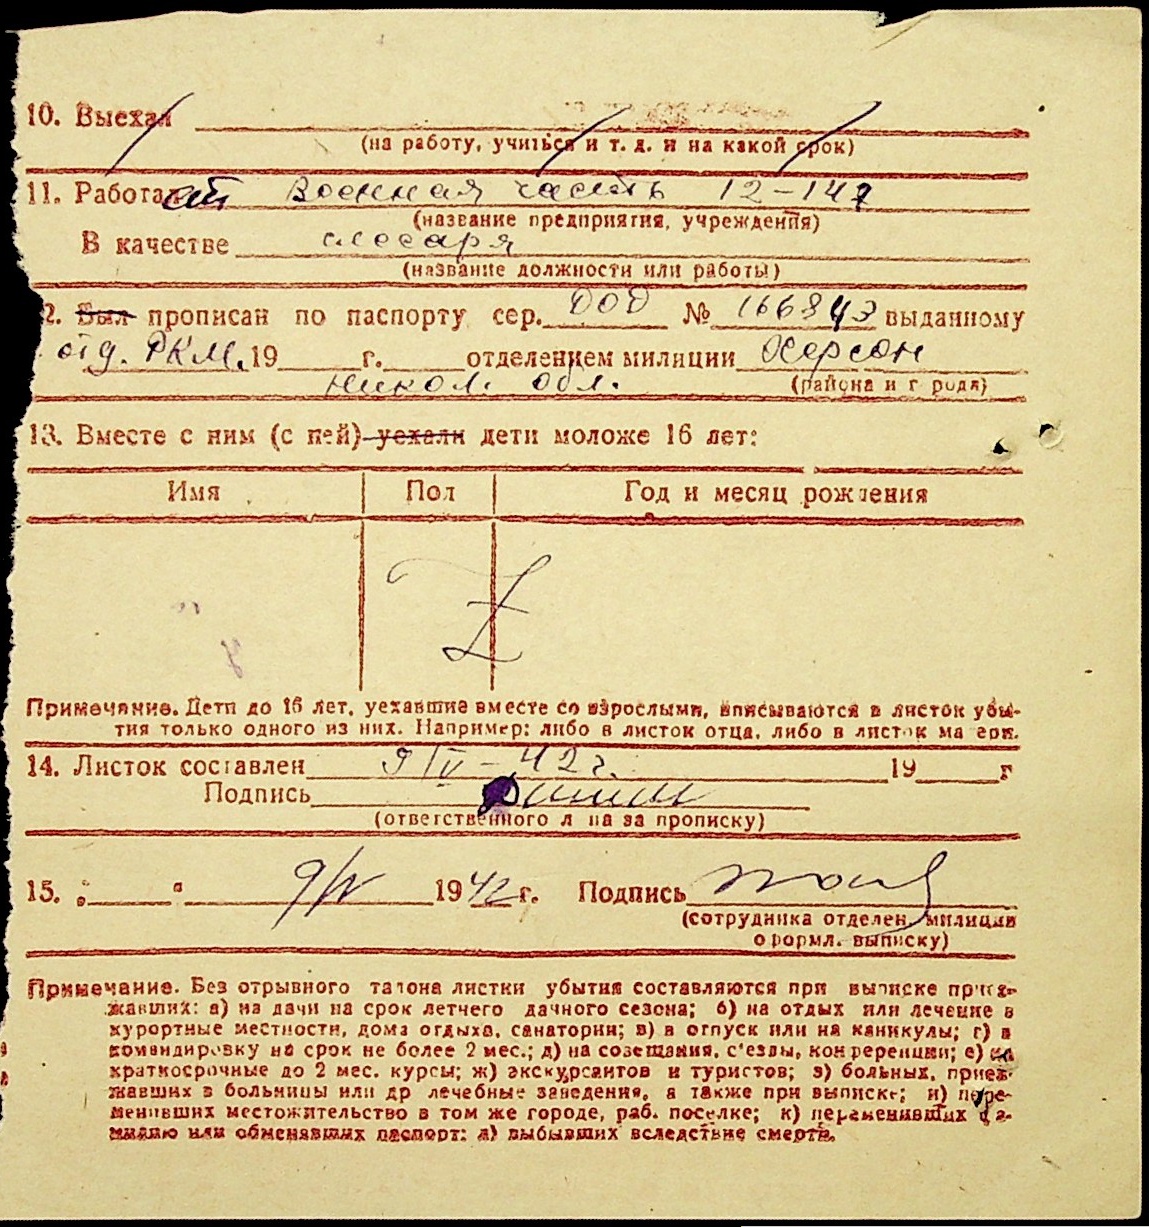 10. Выехал
(на работу, учиться и т. д. и на какой срок)
11. Работает Военная часть 12-147
(название предприятия, учреждения)
В качестве слесаря
(название должности или работы)
2. Был прописан по паспорту сер. № 166843 выданному
отд. РКМ. 19 г. отделением милиции Херсон
(района и города)
никол. обл.
13. Вместе с ним (с ней) уехали дети моложе 16 лет:
Имя Пол Год и месяц рождения
Z
Примечание. Дети до 16 лет, уехавшие вместе со взрослыми, вписываются в листок убы-
тия только одного из них. Например: либо в листок отца, либо в листок матери.
14. Листок составлен 9/IV-42 г. 19 г
Подпись
(ответственного лица за прописку)
15. " " 9/IV 1942 г. Подпись
(сотрудника отделен. милиции
оформл. выписку)
Примечание. Без отрывного талона листки убытия составляются при выписке приез-
жавших: а) на дачи на срок летнего дачного сезона; б) на отдых или лечение в
курортные местности, дома отдыха, санатории; в) в отпуск или на каникулы; г) в
командировку на срок не более 2 мес.; д) на совещания, с'езды, конференции; е) на
краткосрочные до 2 мес. курсы; ж) экскурсантов и туристов; з) больных, приез-
жавших в больницы или др лечебные заведения, а также при выписке; и) пере-
менивших местожительство в том же городе, раб. поселке; к) переменивших фа-
милию или обменявших паспорт; л) выбывших вследствие смерти.